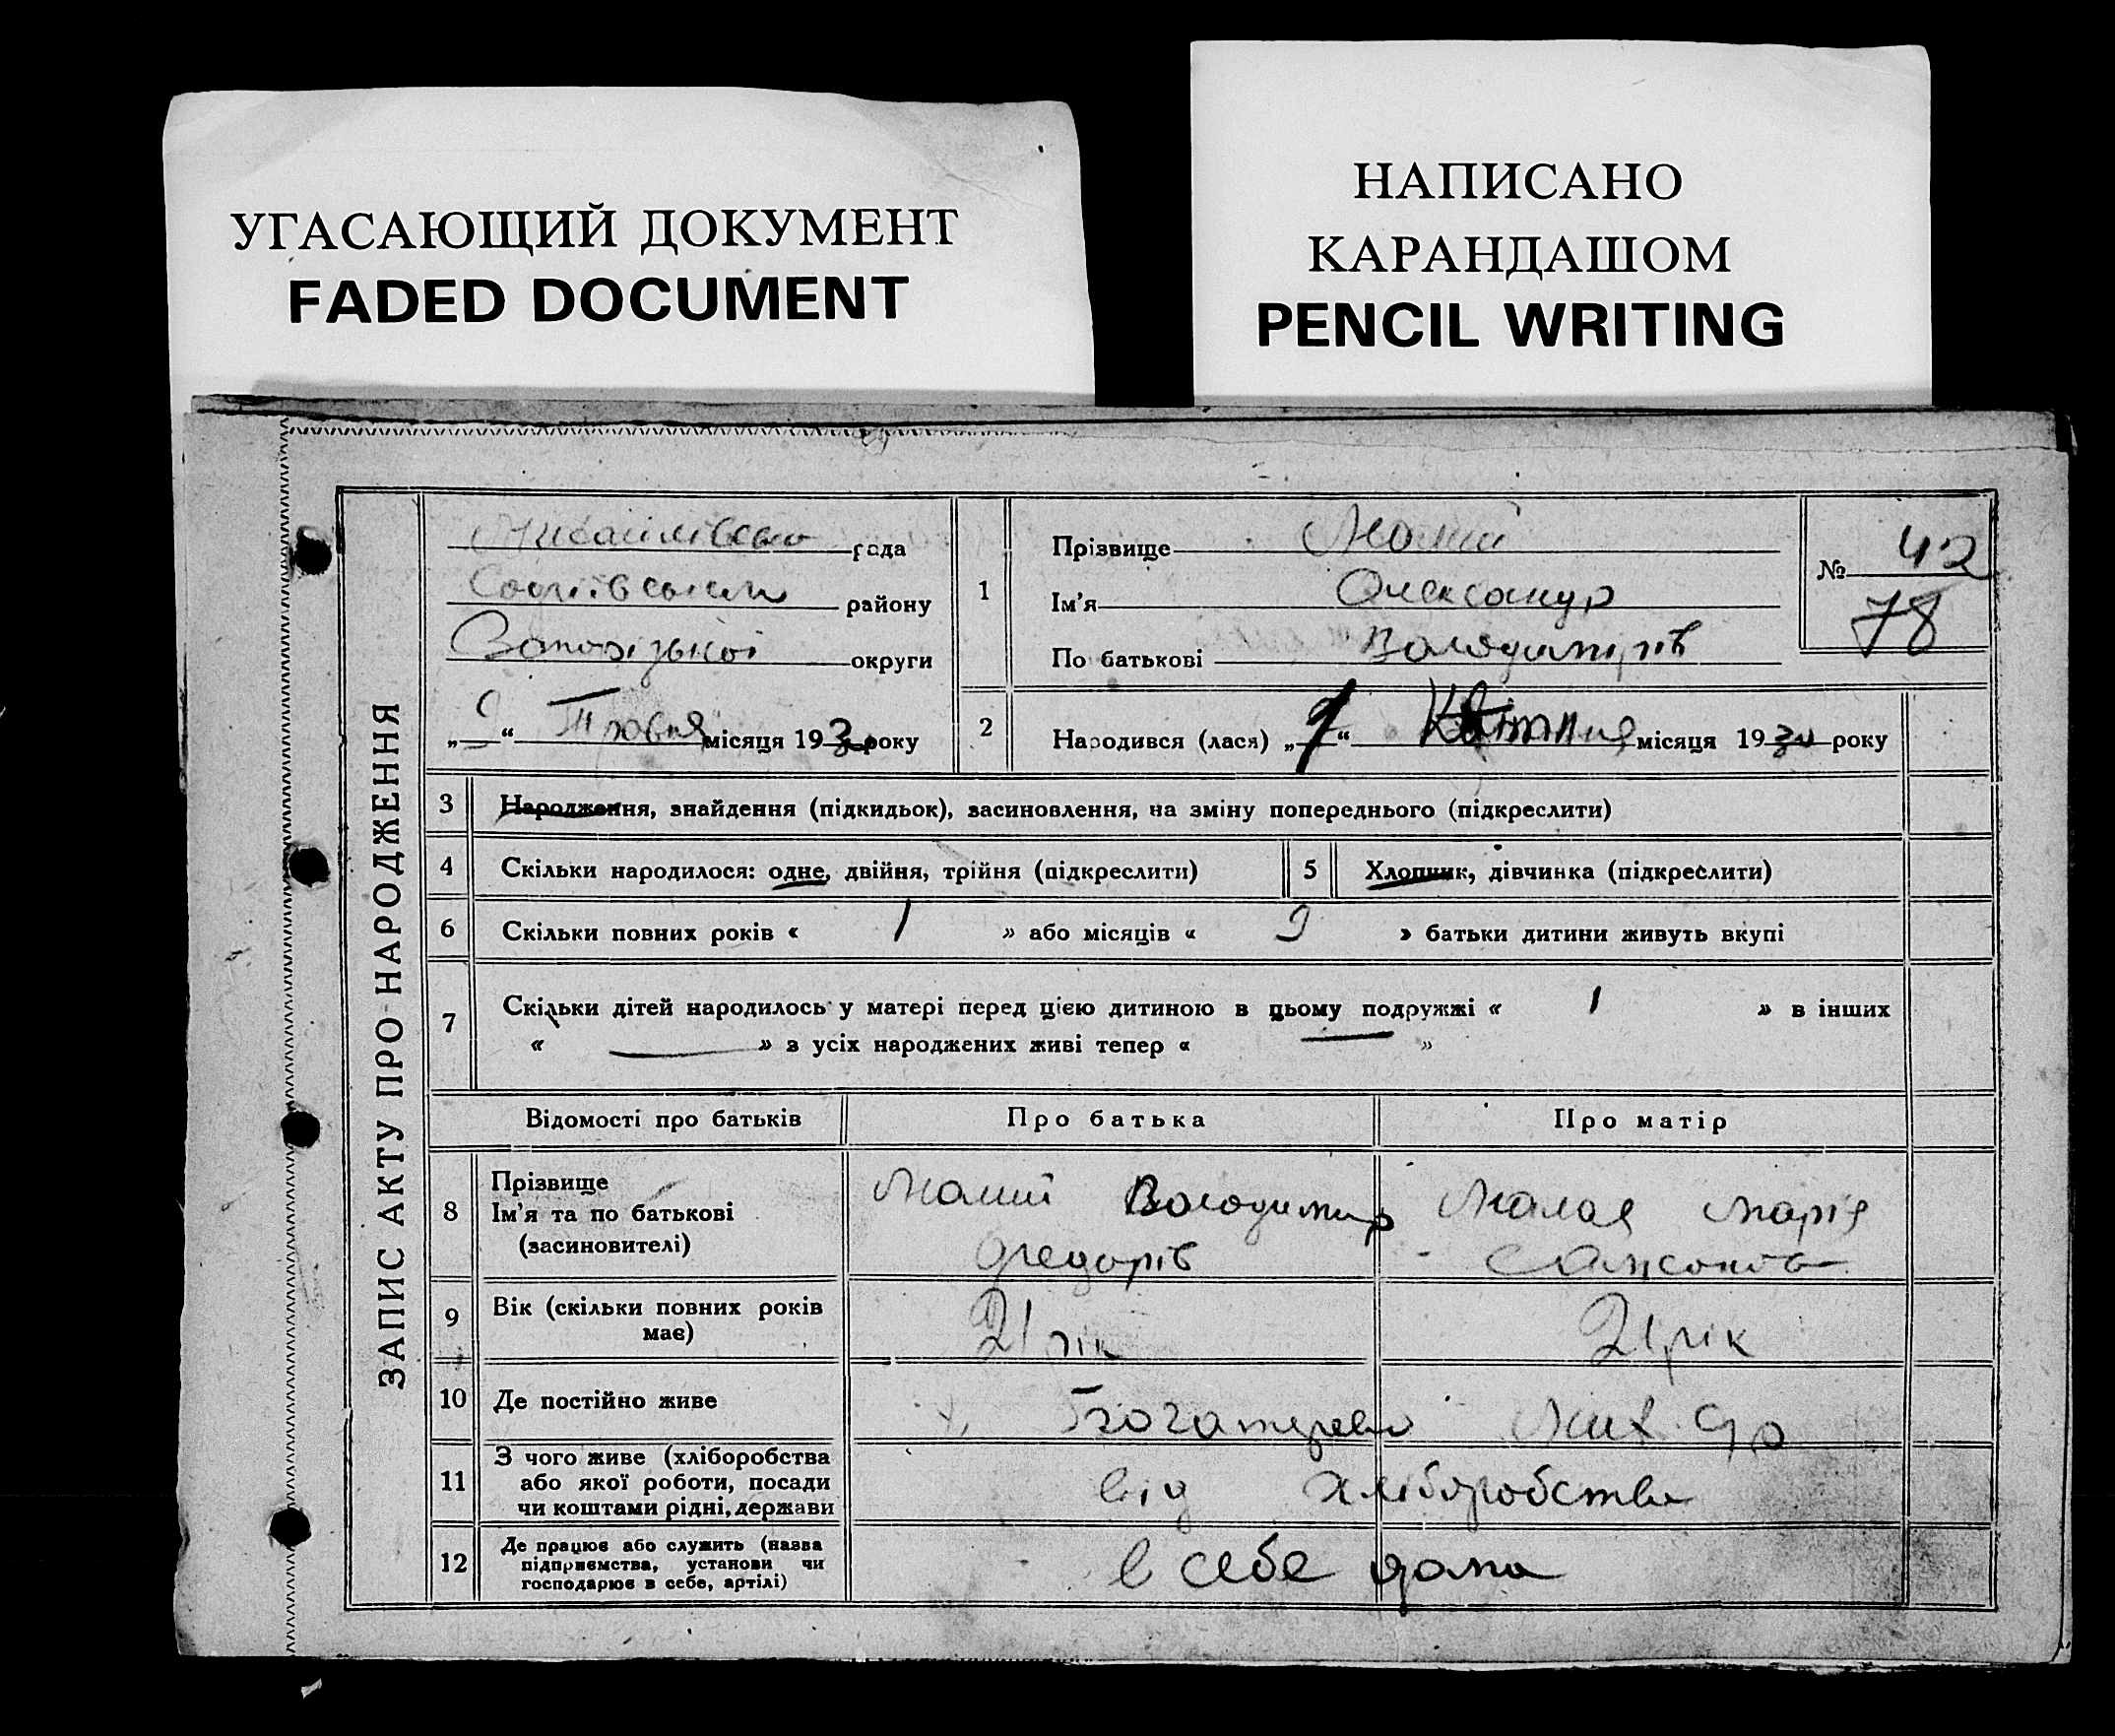 УГАСАЮЩИЙ ДОКУМЕНТ
FADED DOCUMENT
НАПИСАНО
КАРАНДАШОМ
PENCIL WRITING
ЗАПИС АКТУ ПРО НАРОДЖЕННЯ
Михайлівська рада
Софіївського району
Запорізької округи
„9“ Травня місяця 1930 року
1 Прізвище Малий
Ім'я Олександр
По батькові Володимирів
№ 42
78
2 Народився (лася) „ “ Квітня місяця 1930 року
3 Народження, знайдення (підкидьок), засиновлення, на зміну попереднього (підкреслити)
4 Скільки народилося: одне, двійня, трійня (підкреслити)
5 Хлопчик, дівчинка (підкреслити)
6 Скільки повних років « 1 » або місяців « 9 » батьки дитини живуть вкупі
7 Скільки дітей народилось у матері перед цією дитиною в цьому подружжі « 1 » в інших
« — » з усіх народжених живі тепер « — »
Відомості про батьків Про батька Про матір
8 Прізвище
Ім'я та по батькові
(засиновителі)
Малий Володимир
Федорів
Малая Марія
9 Вік (скільки повних років
має)
21 рік
21 рік
10 Де постійно живе
11 З чого живе (хліборобства
або якої роботи, посади
чи коштами рідні, держави
від хліборобства
12 Де працює або служить (назва
підприємства, установи чи
господарює в себе, артілі)
в себе дома